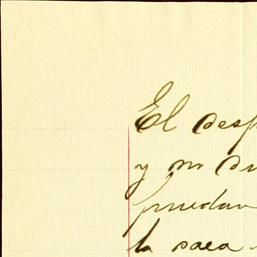 El desp
y no du
puedan
la saca